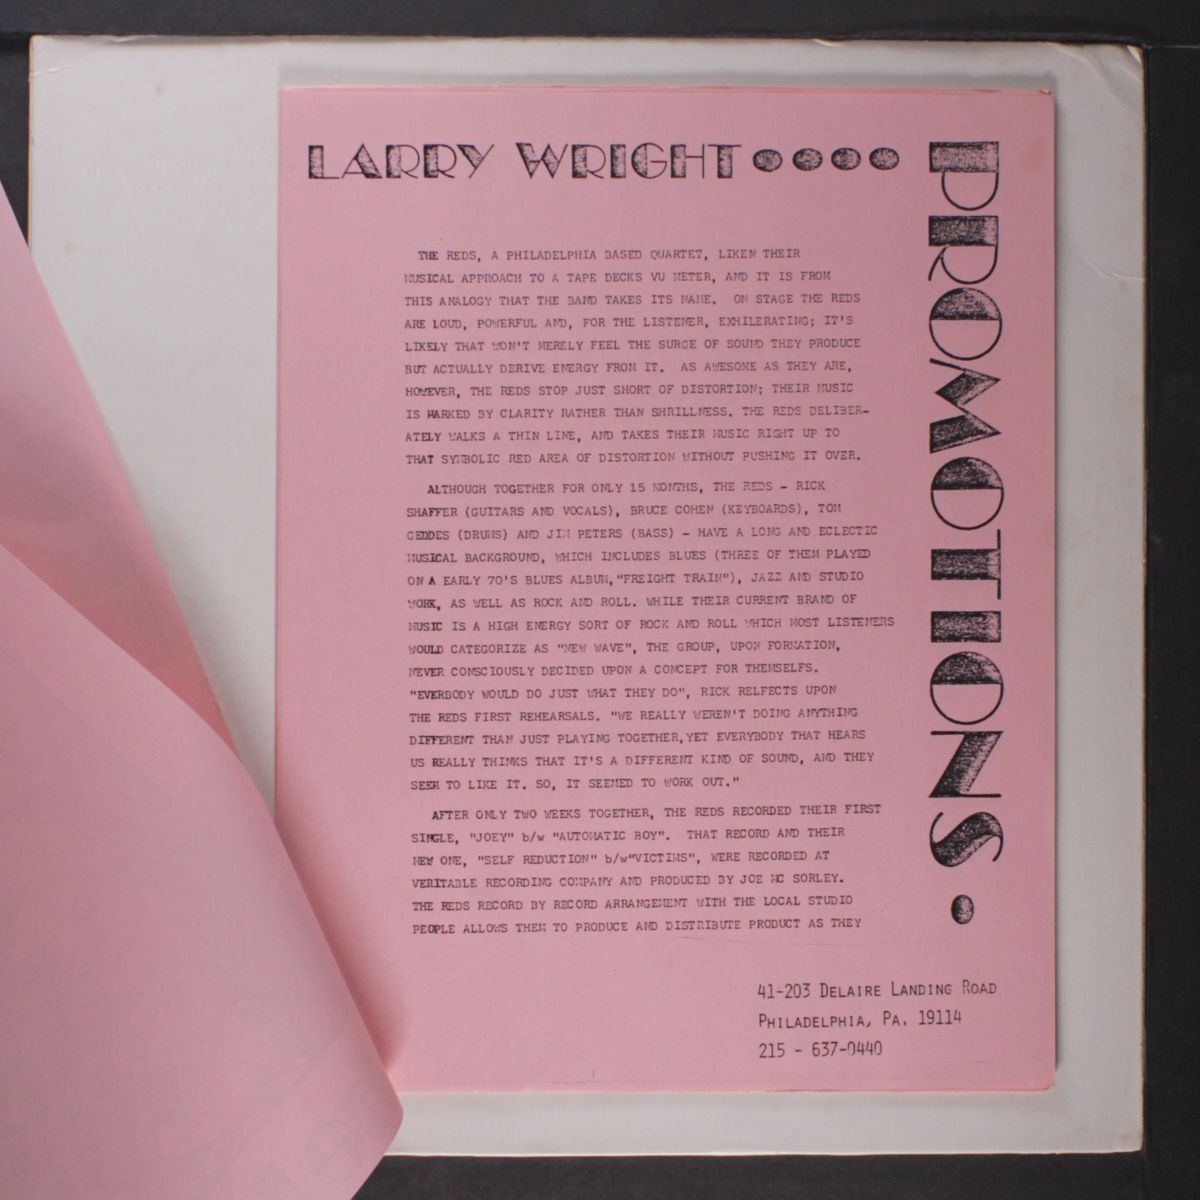 LARRY WRIGHT••••
PROMOTIONS•
THE REDS, A PHILADELPHIA BASED QUARTET, LIKEN THEIR
MUSICAL APPROACH TO A TAPE DECKS VU METER, AND IT IS FROM
THIS ANALOGY THAT THE BAND TAKES ITS NAME. ON STAGE THE REDS
ARE LOUD, POWERFUL AND, FOR THE LISTENER, EXHILERATING; IT'S
LIKELY THAT WON'T MERELY FEEL THE SURGE OF SOUND THEY PRODUCE
BUT ACTUALLY DERIVE ENERGY FROM IT. AS AWESOME AS THEY ARE,
HOWEVER, THE REDS STOP JUST SHORT OF DISTORTION; THEIR MUSIC
IS MARKED BY CLARITY RATHER THAN SHRILLNESS. THE REDS DELIBER-
ATELY WALKS A THIN LINE, AND TAKES THEIR MUSIC RIGHT UP TO
THAT SYMBOLIC RED AREA OF DISTORTION WITHOUT PUSHING IT OVER.
ALTHOUGH TOGETHER FOR ONLY 15 MONTHS, THE REDS - RICK
SHAFFER (GUITARS AND VOCALS), BRUCE COHEN (KEYBOARDS), TOM
GEDDES (DRUMS) AND JIM PETERS (BASS) - HAVE A LONG AND ECLECTIC
MUSICAL BACKGROUND, WHICH INCLUDES BLUES (THREE OF THEM PLAYED
ON A EARLY 70'S BLUES ALBUM,"FREIGHT TRAIN"), JAZZ AND STUDIO
WORK, AS WELL AS ROCK AND ROLL. WHILE THEIR CURRENT BRAND OF
MUSIC IS A HIGH ENERGY SORT OF ROCK AND ROLL WHICH MOST LISTENERS
WOULD CATEGORIZE AS "NEW WAVE", THE GROUP, UPON FORMATION,
NEVER CONSCIOUSLY DECIDED UPON A CONCEPT FOR THEMSELFS.
"EVERBODY WOULD DO JUST WHAT THEY DO", RICK RELFECTS UPON
THE REDS FIRST REHEARSALS. "WE REALLY WEREN'T DOING ANYTHING
DIFFERENT THAN JUST PLAYING TOGETHER,YET EVERYBODY THAT HEARS
US REALLY THINKS THAT IT'S A DIFFERENT KIND OF SOUND, AND THEY
SEEM TO LIKE IT. SO, IT SEEMED TO WORK OUT."
AFTER ONLY TWO WEEKS TOGETHER, THE REDS RECORDED THEIR FIRST
SINGLE, "JOEY" b/w "AUTOMATIC BOY". THAT RECORD AND THEIR
NEW ONE, "SELF REDUCTION" b/w"VICTIMS", WERE RECORDED AT
VERITABLE RECORDING COMPANY AND PRODUCED BY JOE MC SORLEY.
THE REDS RECORD BY RECORD ARRANGEMENT WITH THE LOCAL STUDIO
PEOPLE ALLOWS THEM TO PRODUCE AND DISTRIBUTE PRODUCT AS THEY
41-203 DELAIRE LANDING ROAD
PHILADELPHIA, PA. 19114
215 - 637-0440